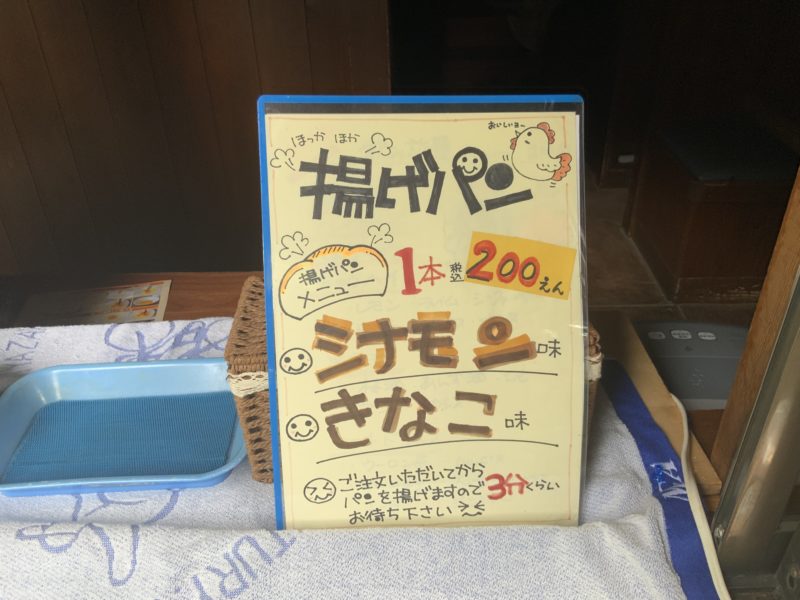 おいしいョ〜
ほっか ほか
揚げパン
揚げパン
メニュー
1本 税込 200えん
シナモン味
きなこ味
ご注文いただいてから
パンを揚げますので 3分くらい
お待ち下さい